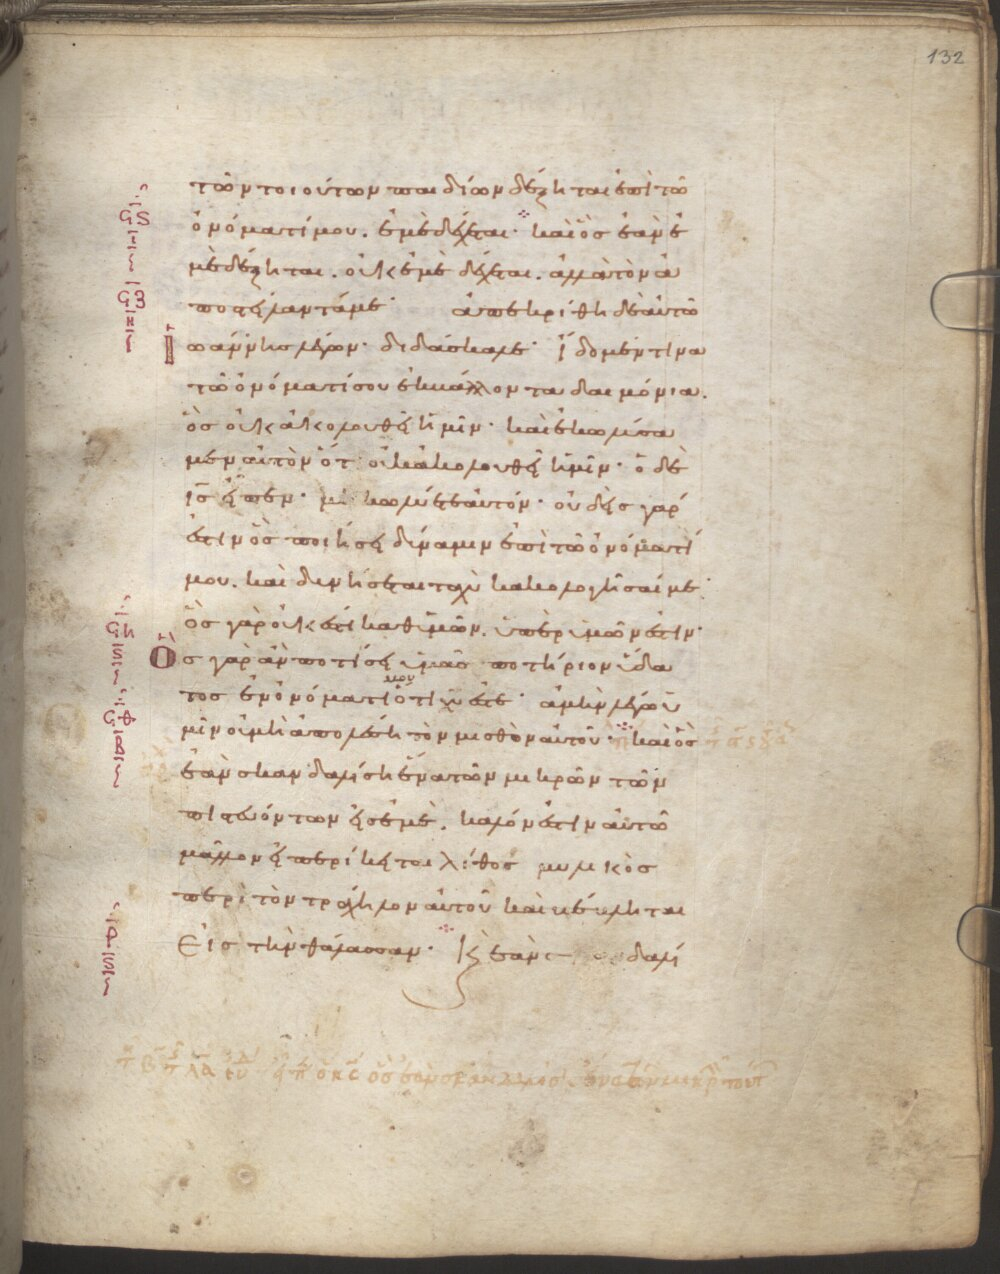 132
τῶν τοιούτων παιδίων δέξηται ἐπὶ τῶ
ὀνόματί μου. ἐμὲ δέχεται· καὶ ὃς ἐὰν ἐ
μὲ δέξηται. οὐκ ἐμὲ δέχεται. ἀλλὰ τὸν ἀ
ποστείλαντά με· ἀπεκρίθη δὲ αὐτῶ
ἰωάννης λέγων· διδάσκαλε· ἴδομέν τινα
τῶ ὀνόματί σου ἐκβάλλοντα δαιμόνια.
ὃς οὐκ ἀκολουθεῖ ἡμῖν· καὶ ἐκωλύσα
μεν αὐτὸν ὅτι οὐκ ἀκολουθεῖ ἡμῖν· ὁ δὲ
ις εἶπεν· μὴ κωλύετε αὐτόν· οὐδεὶς γάρ
ἐστιν ὃς ποιήσει δύναμιν ἐπὶ τῶ ὀνόματί
μου. καὶ δυνήσεται ταχὺ κακολογῆσαί με·
ὃς γὰρ οὐκ ἔστι καθ ὑμῶν. ὑπὲρ ὑμῶν ἐστιν·
Ὃς γὰρ ἂν ποτίσει ὑμᾶς ποτήριον ὕδα
μου
τος ἐν ὀνόματι ὅτι χυ ἐστε· ἀμὴν λέγω ὑ
μῖν οὐ μὴ ἀπολέσῃ τὸν μισθὸν αὐτοῦ· καὶ ὃς
ἐὰν σκανδαλίσῃ ἕνα τῶν μικρῶν τῶν
πιστευόντων εἰς ἐμὲ. καλόν ἐστιν αὐτῶ
μᾶλλον εἰ περίκειται λίθος μυλικὸς
περὶ τὸν τράχηλον αὐτοῦ καὶ βέβληται
Εἰς τὴν θάλασσαν· Κ ἐὰν δαλί